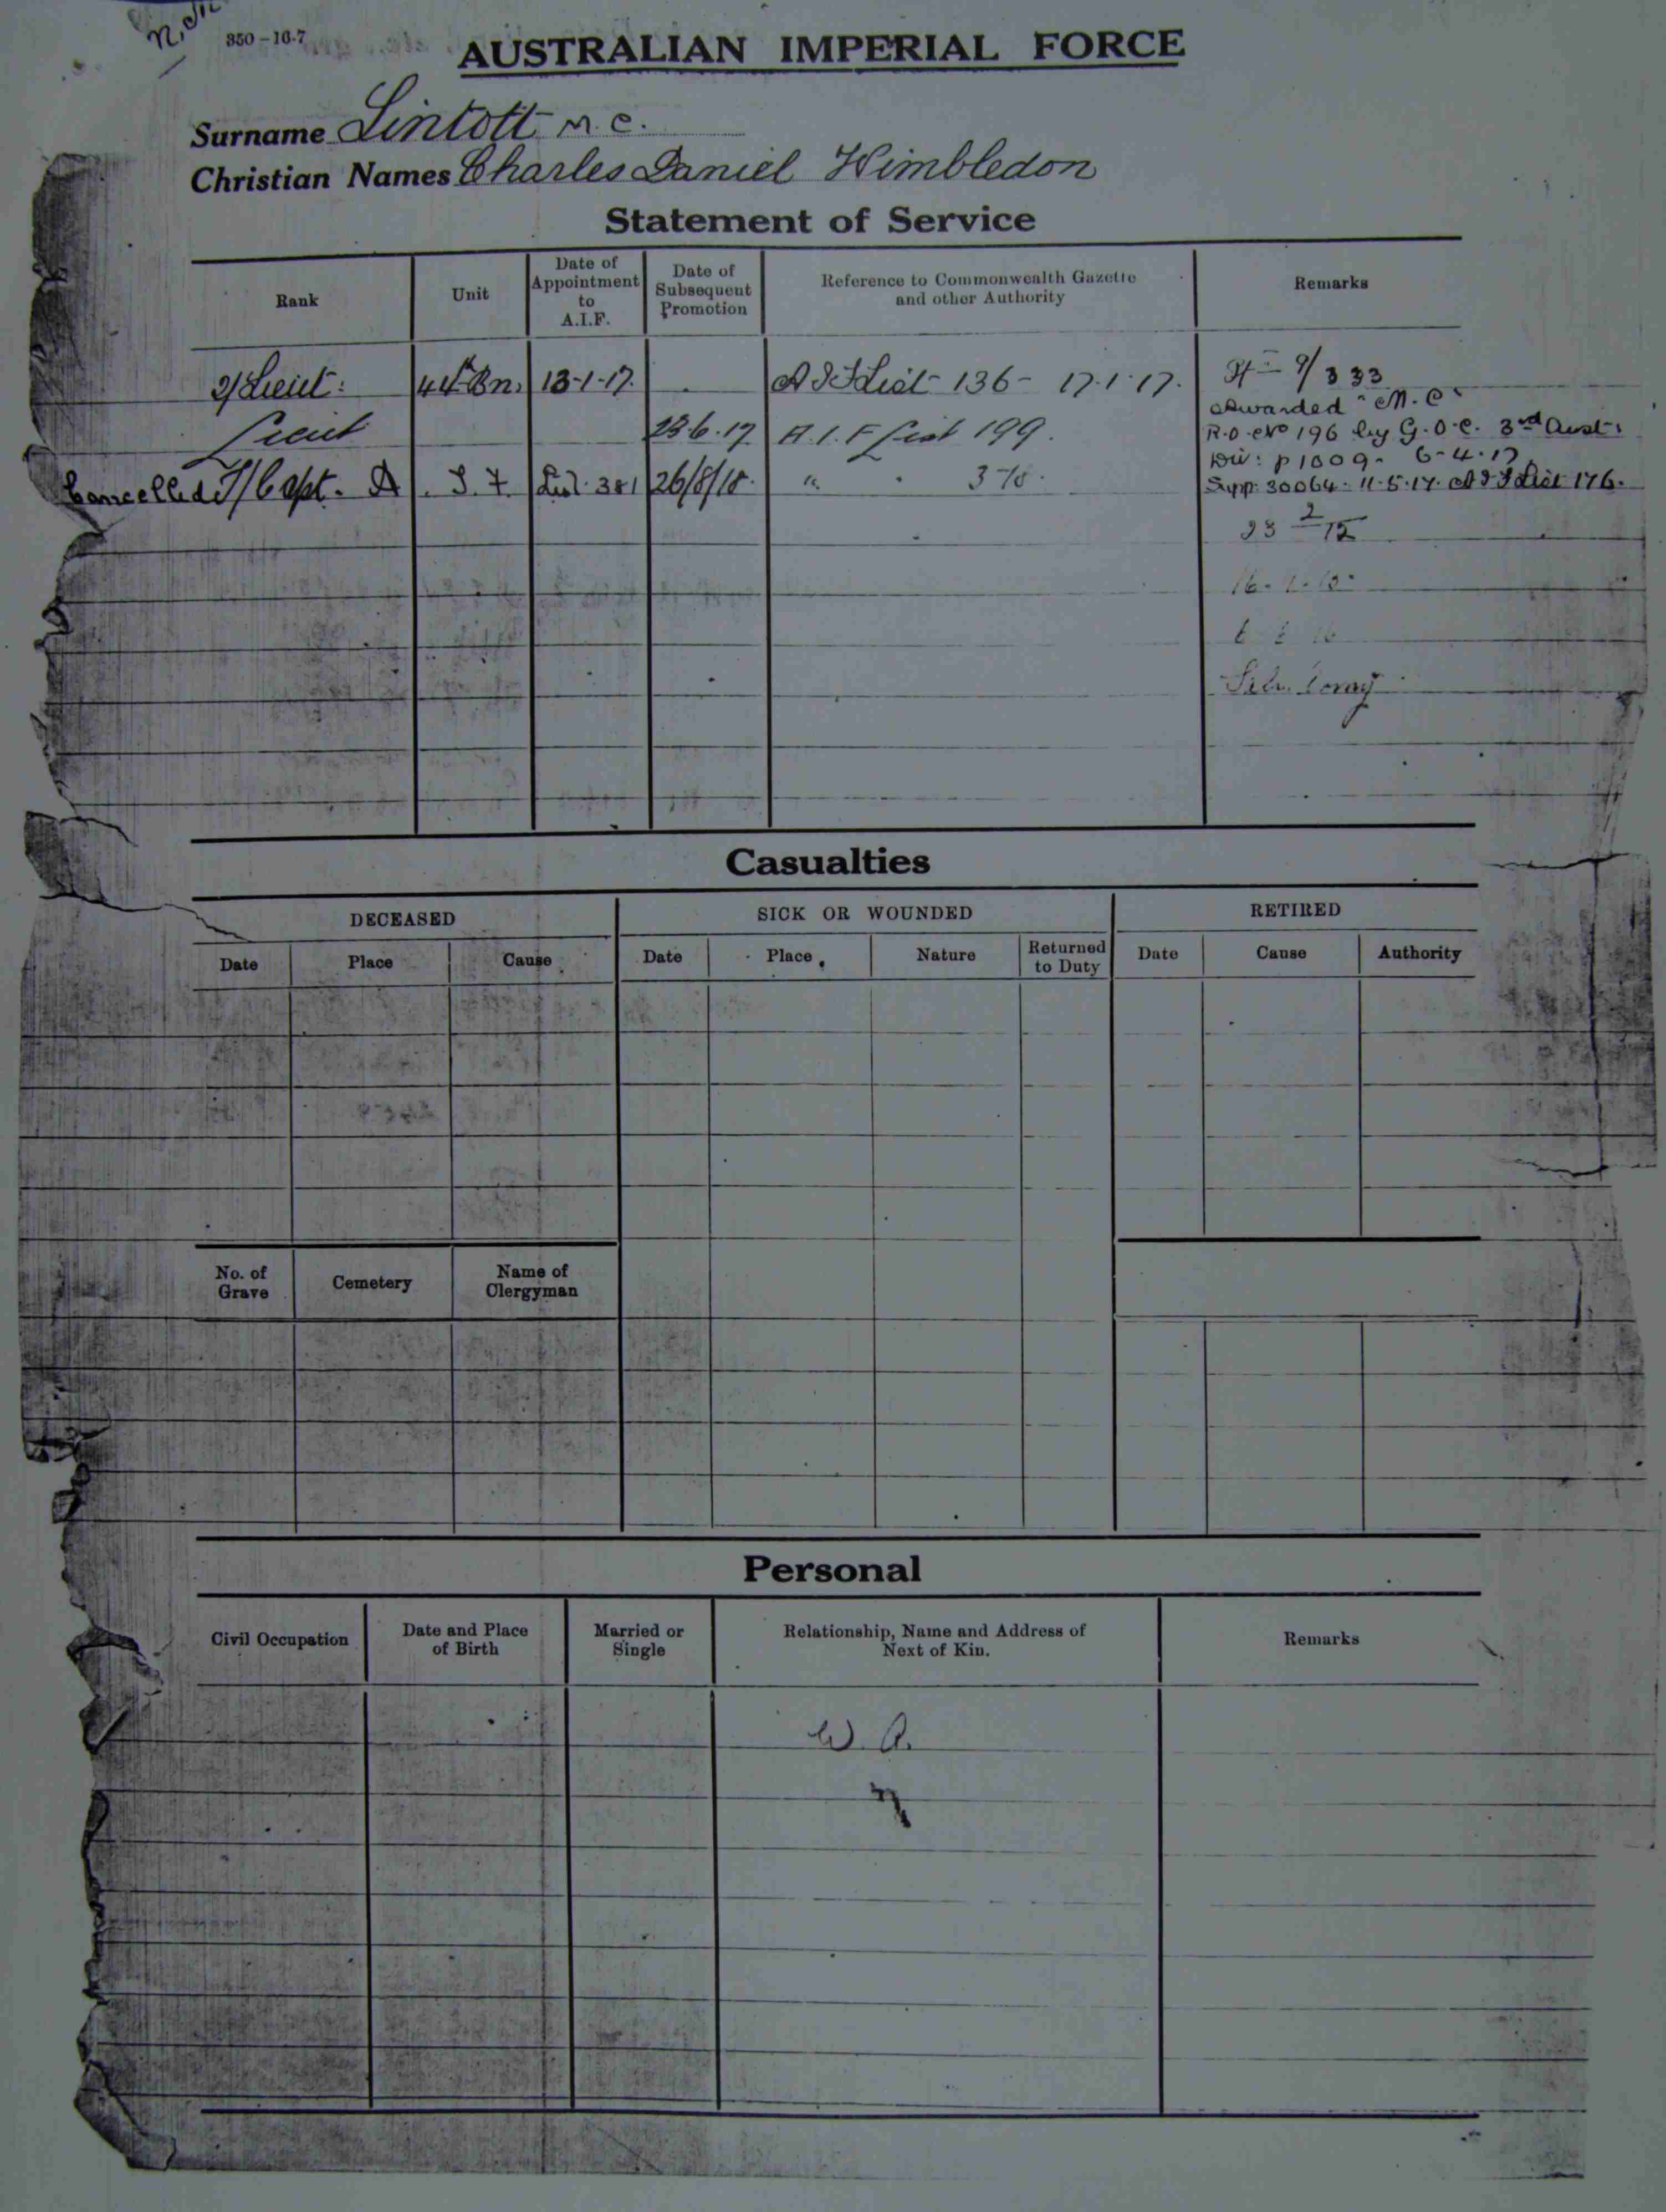 350-16-7
AUSTRALIAN IMPERIAL FORCE
Surname Lintott M.C.
Christian Names Charles Daniel Wimbledon
Statement of Service
Rank Unit Date of Appointment to A.I.F. Date of Subsequent Promotion Reference to Commonwealth Gazette and other Authority Remarks
2/Lieut: 44th Bn. 13-1-17. A I F List 136 - 17.1.17. 9/333
Awarded "M.C"
Lieut 23.6.17 A.I.F. List 199. R.O. No 196 by G.O.C. 3rd Aust:
Div: p 1009 - 6-4-17
Cancelled T/Capt. A.I.F. List 381 26/8/18. " " 370. Supp: 30064 - 11.5.17. A I F List 176.
Casualties
DECEASED SICK OR WOUNDED RETIRED
Date Place Cause Date Place Nature Returned to Duty Date Cause Authority
No. of Grave Cemetery Name of Clergyman
Personal
Civil Occupation Date and Place of Birth Married or Single Relationship, Name and Address of Next of Kin. Remarks
W A.